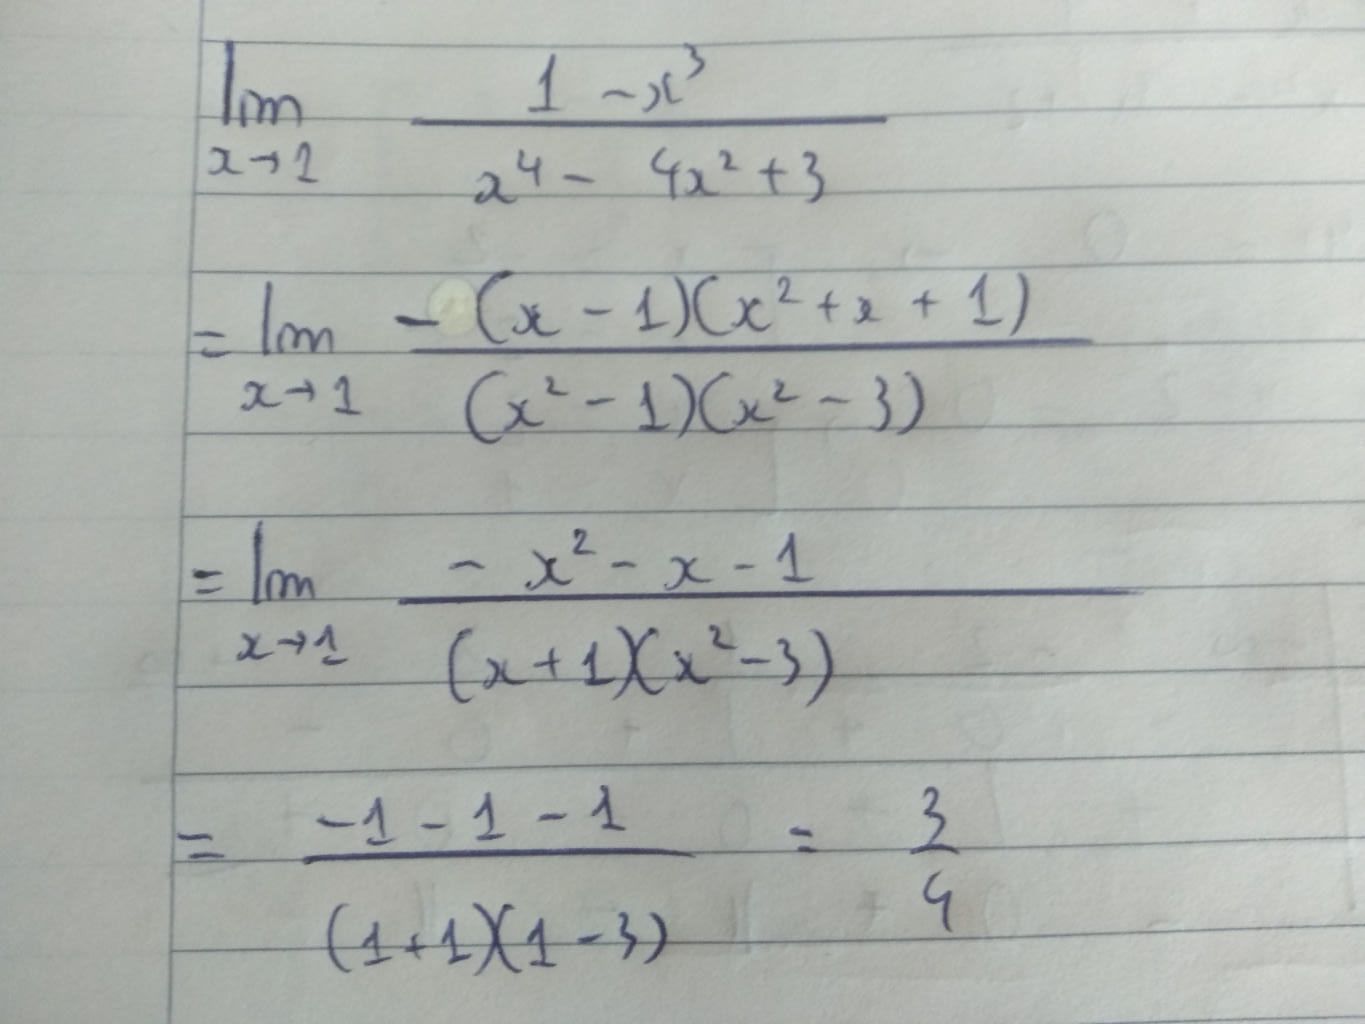 lim x→1 (1 - x³) / (x⁴ - 4x² + 3)
= lim x→1 -(x - 1)(x² + x + 1) / (x² - 1)(x² - 3)
= lim x→1 (-x² - x - 1) / (x + 1)(x² - 3)
= (-1 - 1 - 1) / (1 + 1)(1 - 3) = 3/4